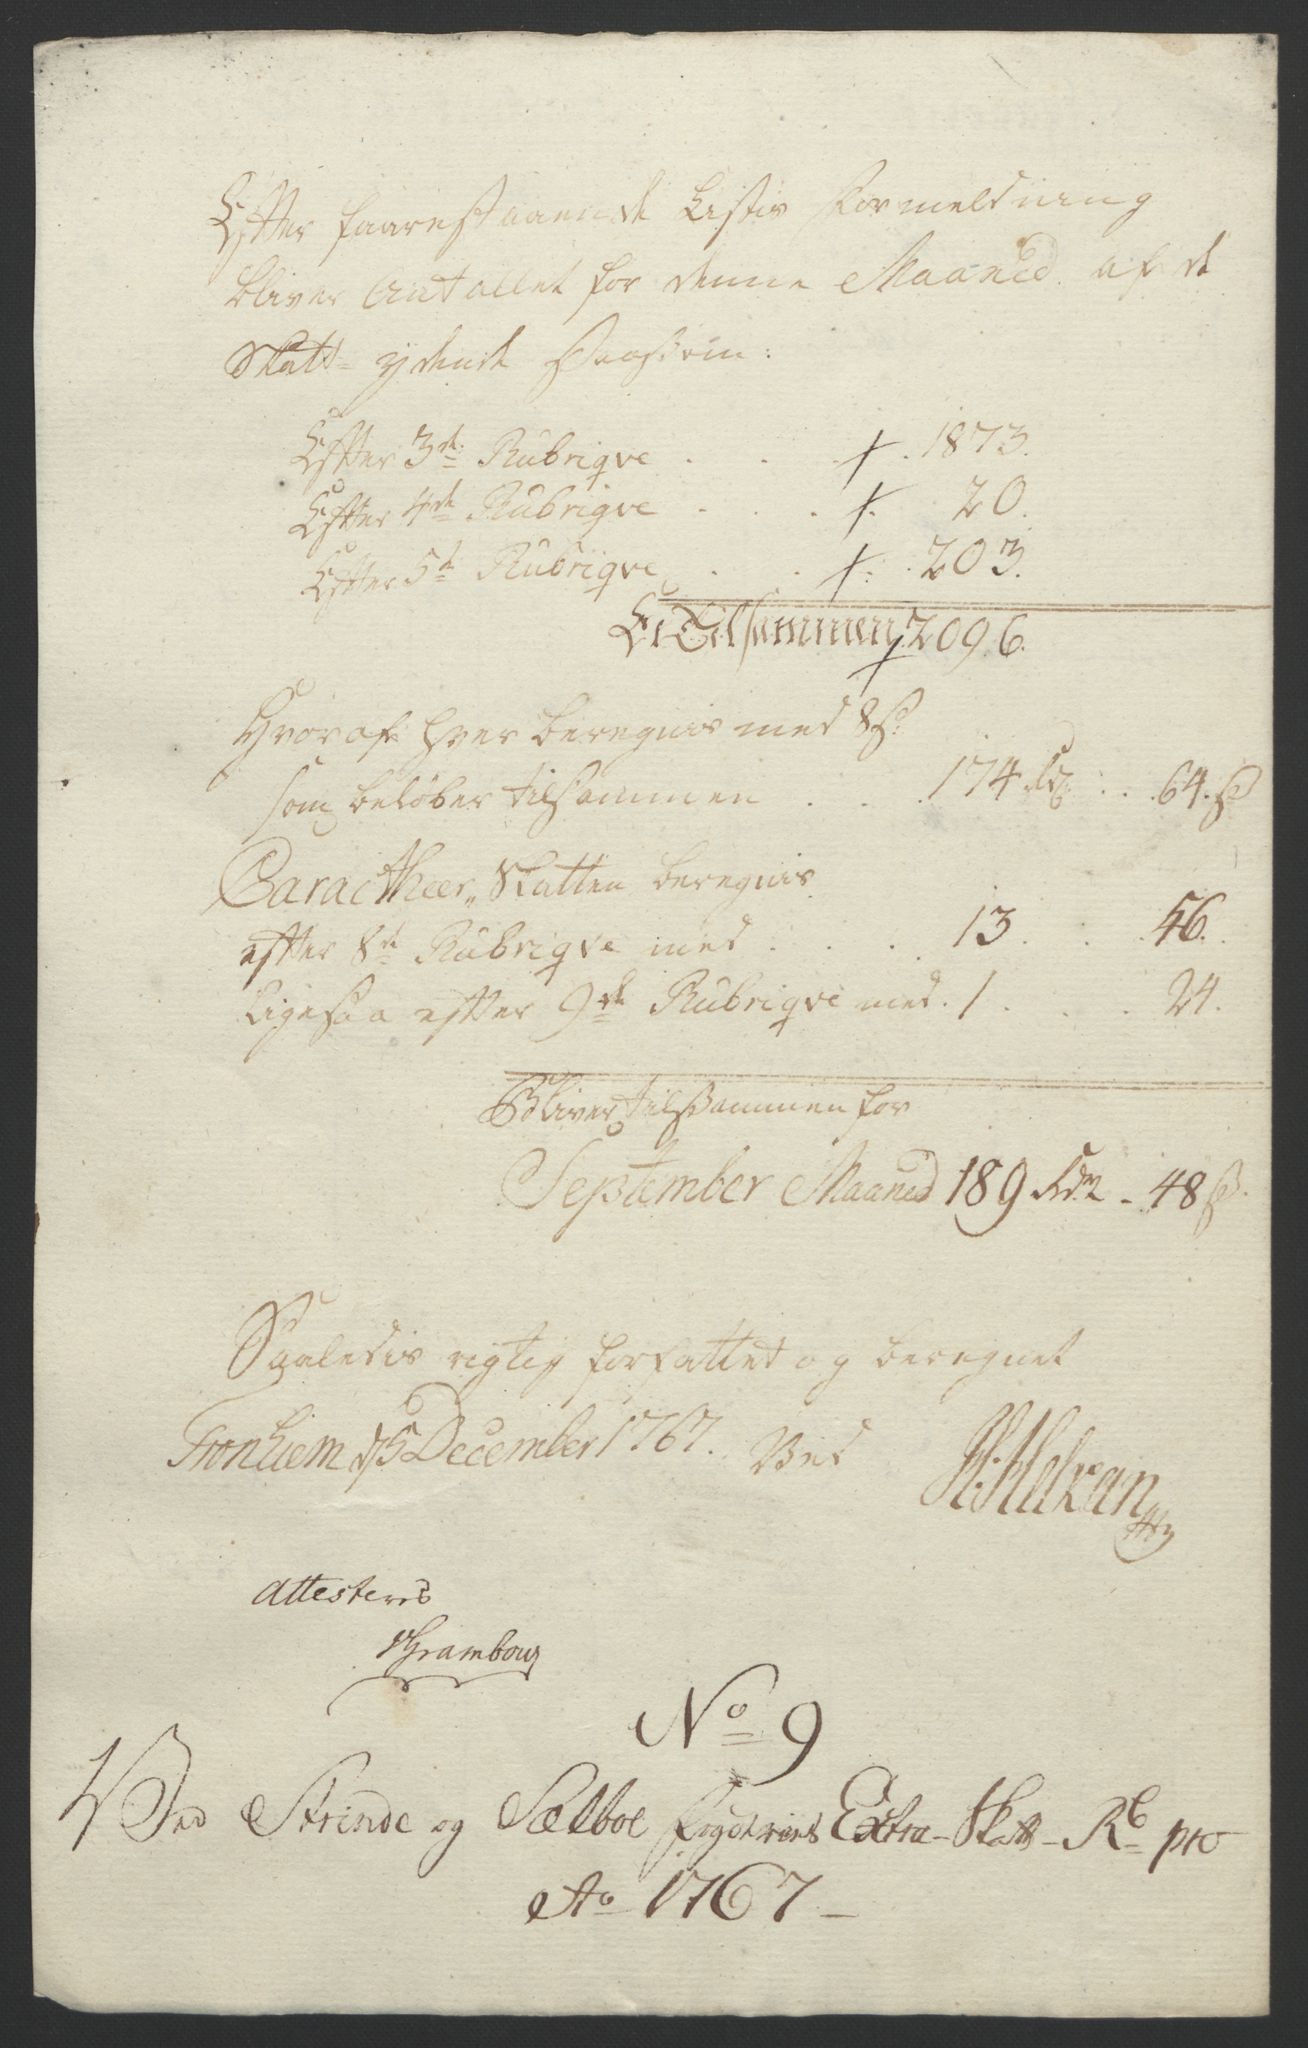 Efter faarestaaende Listes Formeldning
bliver Antallet for denne Maaned af de
Skatt- ydende saasom:
Efter 3de Rubriqve . . . 1873.
Efter 4de Rubriqve . . . 20.
Efter 5te Rubriqve . . . 203.
Er Tilsammen 2096.
Hvoraf hver beregnes med 8 s:
som beløber tilsammen . . . 174 Rdr . . 64. s
Caractheer„ Skatten beregnes
efter 8de Rubriqve med . . . 13 . . . 56.
Ligesaa efter 9de Rubriqve med . 1 . . . 24.
Bliver tilsammen for
September Maaned 189 Rdr - 48 s.
Saaledes rigtig forfattet og beregnet
Tronhiem d 5 December 1767. Ved
Attesteres
No 9
Ved Strinde og Sælboe fogderies Extra- Skatt- R: pro
Ao 1767 -